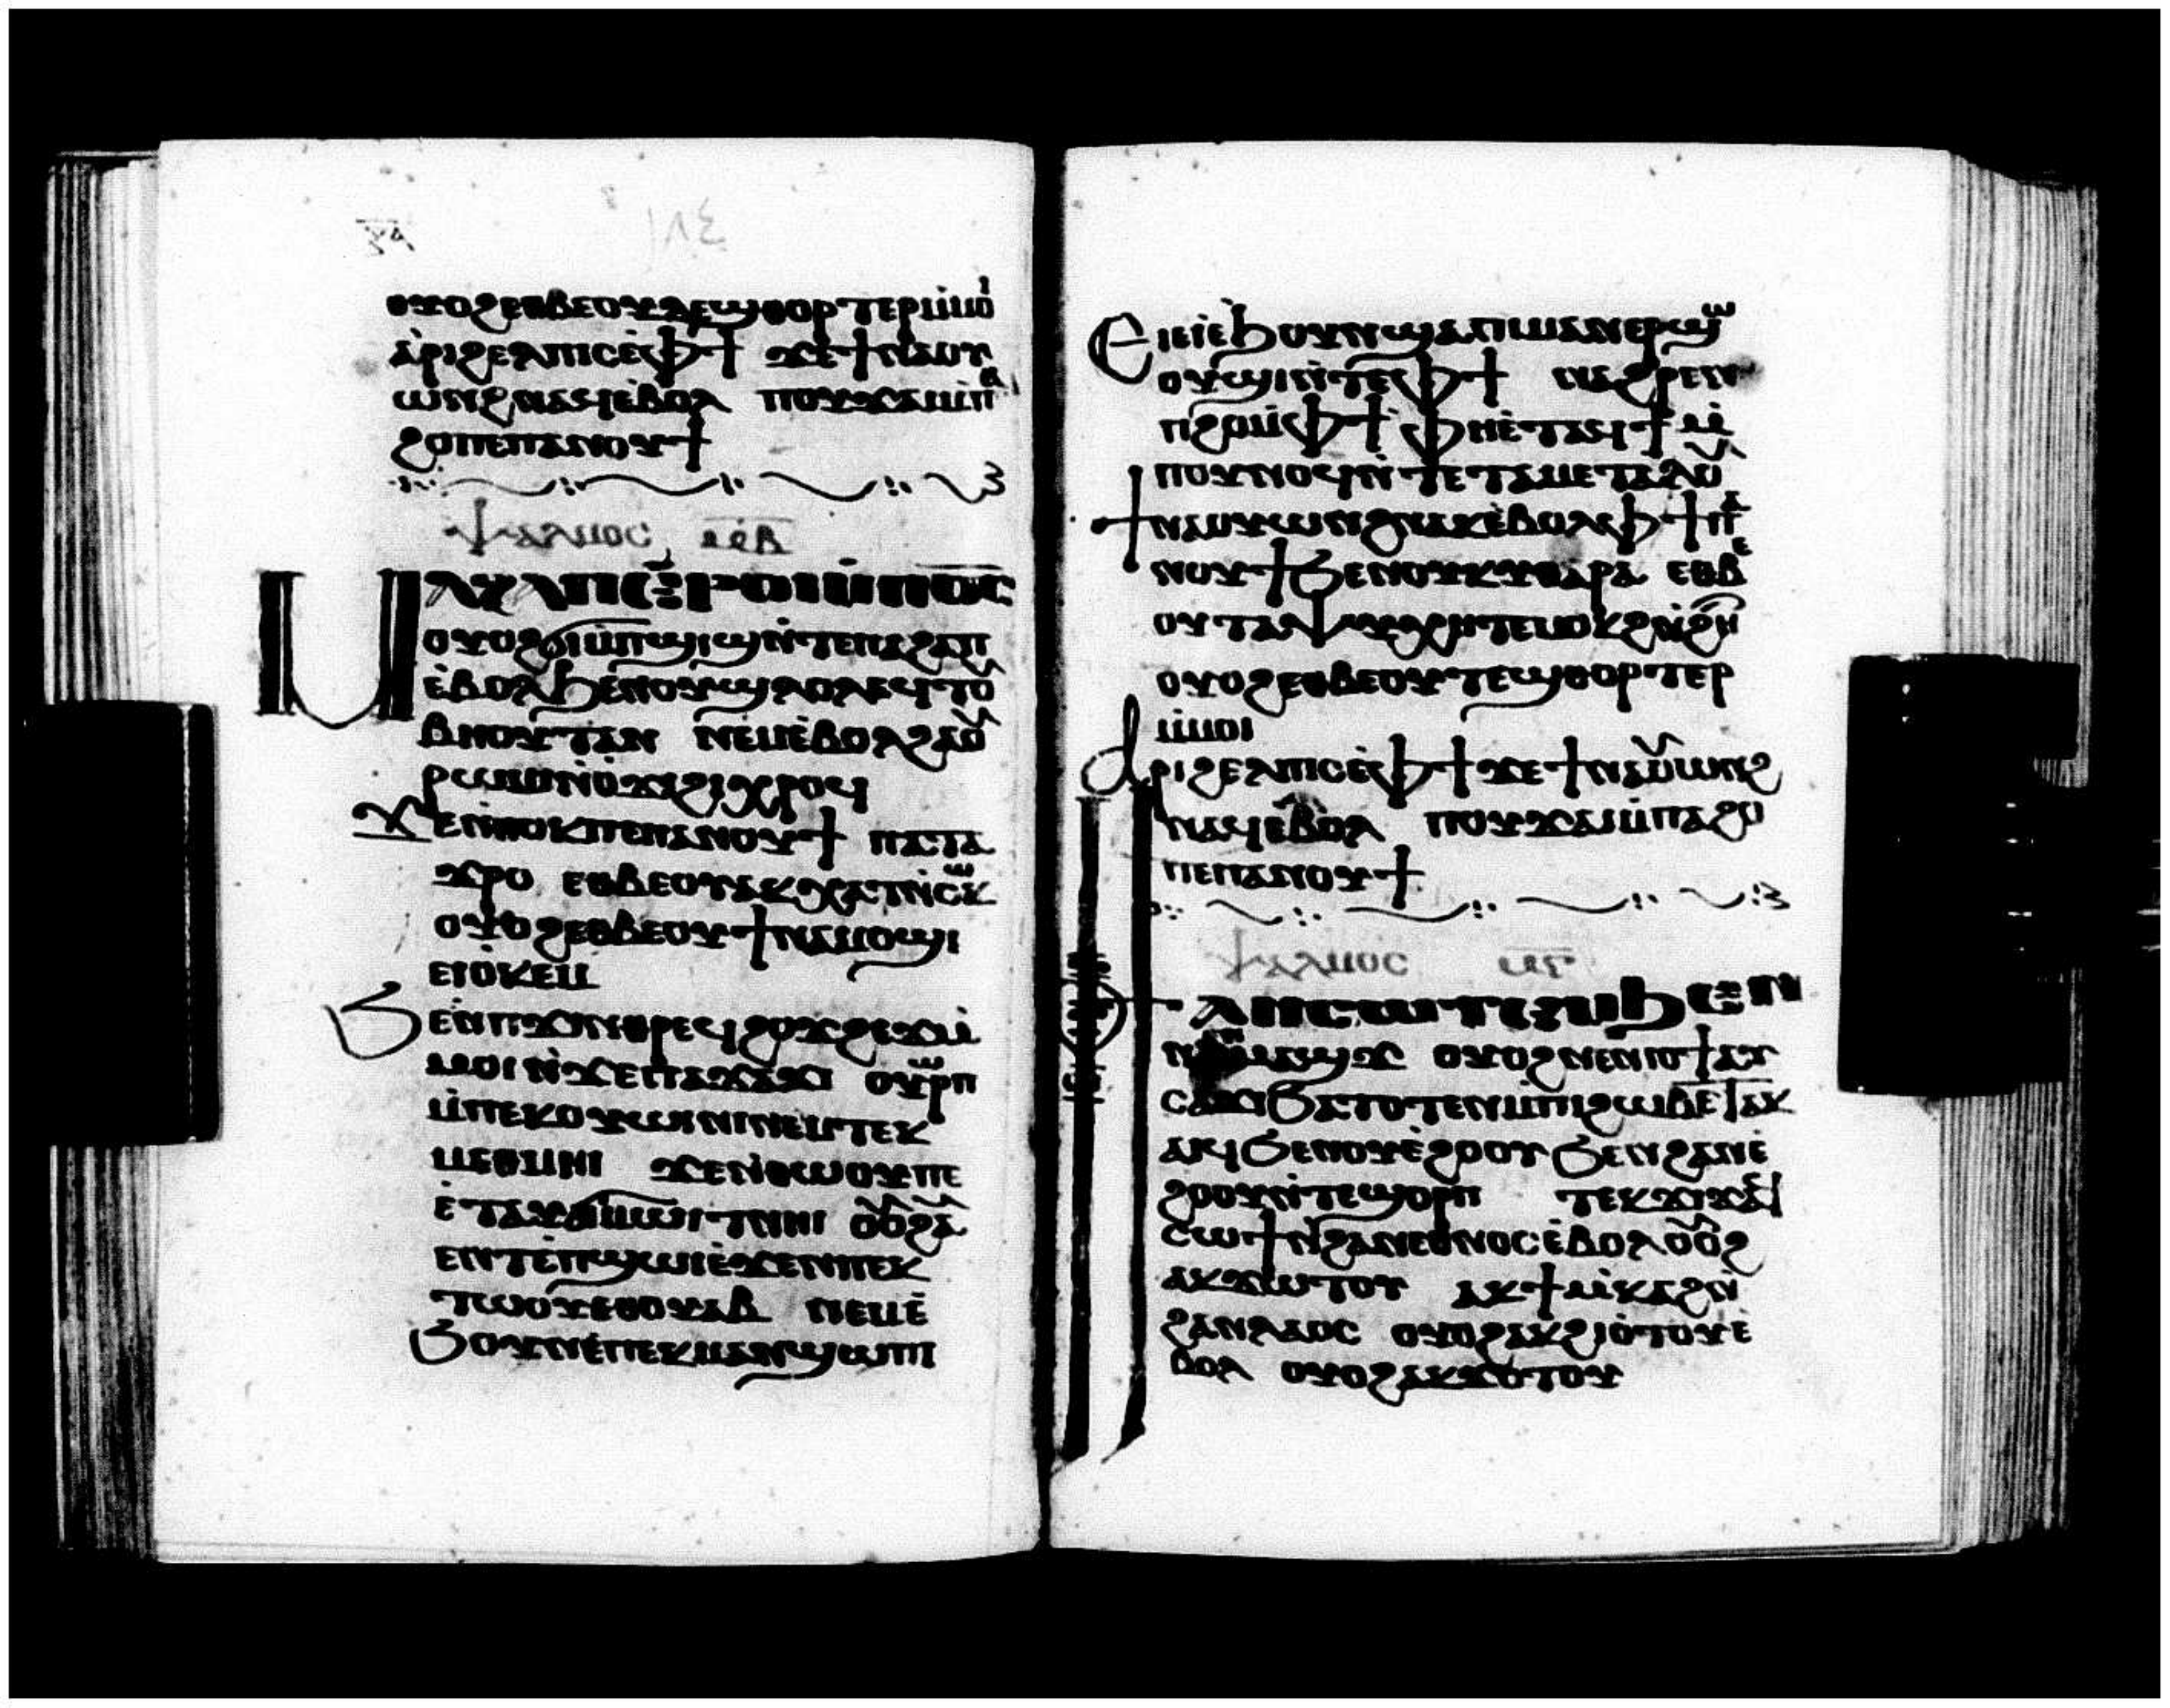 ١٨٤
ⲟⲩⲟϩⲉⲑⲃⲉⲟⲩⲧⲉϣⲑⲟⲣⲧⲉⲣⲙ̇ⲙⲟⲓ
ⲁ̇ⲣⲓϩⲉⲗⲡⲓⲥⲉ̇ⲫϯ ϫⲉϯⲛⲁⲟⲩ
ⲱⲛϩⲛⲁϥⲉ̇ⲃⲟⲗ ⲡⲟⲩϫⲁⲓⲙ̇ⲡⲁ
ϩⲟⲡⲉⲡⲁⲛⲟⲩϯ
ⲯⲁⲗⲙⲟⲥ ⲙ̅ⲃ̅
ⲙⲁϩⲁⲡⲉ̇ⲣⲟⲓⲙ̇ⲡⲟ̅ⲥ̅
ⲟⲩⲟϩϭⲓⲙ̇ⲡϣⲓϣⲛ̇ⲧⲉⲡⲁϩⲁⲡ
ⲉ̇ⲃⲟⲗϧⲉⲛⲟⲩϣⲗⲟⲗⲉϥⲧⲟⲩ
ⲃⲏⲟⲩⲧⲁⲛ ⲛⲉⲙⲉ̇ⲃⲟⲗϩⲁⲟⲩ
ⲣⲱⲙⲓⲛ̇ⲟ̇ϫⲓϩⲓⲭⲣⲟϥ
ϫⲉⲛ̇ⲑⲟⲕⲡⲉⲡⲁⲛⲟⲩϯ ⲡⲁⲧⲁ
ϫⲣⲟ ⲉⲑⲃⲉⲟⲩⲁⲕⲭⲁⲧⲛ̇ⲥⲱⲕ
ⲟⲩⲟϩⲉⲑⲃⲉⲟⲩϯⲛⲁⲙⲟϣⲓ
ⲉⲓⲟⲕⲉⲙ
ϧⲉⲛⲡϫⲓⲛⲑⲣⲉϥϩⲟϫϩⲉϫⲙ̇
ⲙⲟⲓⲛ̇ϫⲉⲡⲁϫⲁϫⲓ ⲟⲩⲱⲣⲡ
ⲙ̇ⲡⲉⲕⲟⲩⲱⲓⲛⲓⲛⲉⲙⲧⲉⲕ
ⲙⲉⲑⲙⲏⲓ ϫⲉⲛ̇ⲑⲱⲟⲩⲡⲉ
ⲉ̇ⲧⲁⲩϭⲓⲙⲱⲓⲧⲛⲏⲓ ⲟⲩⲟϩⲁⲩ
ⲉⲛⲧⲉ̇ⲡϣⲱⲓⲉ̇ϫⲉⲛⲡⲉⲕ
ⲧⲱⲟⲩⲉⲑⲟⲩⲁⲃ ⲛⲉⲙⲉ̇
ϧⲟⲩⲛⲉ̇ⲡⲉⲕⲙⲁⲛϣⲱⲡⲓ
ⲉⲓⲉ̇ⲓⲉ̇ϧⲟⲩⲛϣⲁⲡⲓⲙⲁⲛⲉⲣϣⲱ
ⲟⲩϣⲓⲛ̇ⲧⲉⲫϯ ⲛⲁϩⲣⲉⲛ
ⲡϩⲟⲙ̇ⲫϯ ⲫⲏⲉ̇ⲧⲁϥϯⲙ̇
ⲡⲟⲩⲛⲟϥⲛ̇ⲧⲉⲧⲁⲙⲉⲧⲁⲗⲟⲩ
ϯⲛⲁⲟⲩⲱⲛϩⲛⲁⲕⲉ̇ⲃⲟⲗⲫϯⲡⲁ
ⲛⲟⲩϯϧⲉⲛⲟⲩⲕⲩⲑⲁⲣⲁ ⲉⲑⲃⲉ
ⲟⲩⲧⲁⲯⲩⲭⲏⲧⲉⲙⲟⲕϩⲛ̇ϩⲏⲧ
ⲟⲩⲟϩⲉⲑⲃⲉⲟⲩⲧⲉϣⲑⲟⲣⲧⲉⲣ
ⲙ̇ⲙⲟⲓ
ⲁⲣⲓϩⲉⲗⲡⲓⲥⲉ̇ⲫϯϫⲉϯⲛⲁⲟⲩⲱⲛϩ
ⲛⲁϥⲉ̇ⲃⲟⲗ ⲡⲟⲩϫⲁⲓⲙ̇ⲡⲁϩⲟ
ⲡⲉⲡⲁⲛⲟⲩϯ
ⲯⲁⲗⲙⲟⲥ ⲙ̅ⲅ̅
ⲫϯ ⲁⲛⲥⲱⲧⲉⲙϧⲉⲛ
ⲛⲉⲛⲙⲁϣϫ ⲟⲩⲟϩⲛⲉⲛⲓⲟϯⲁⲩ
ⲥⲁϫⲓϧⲁⲧⲟⲧⲉⲛⲙ̇ⲡⲓϩⲱⲃⲉ̇ⲧⲁⲕ
ⲁⲓϥϧⲉⲛⲟⲩⲉ̇ϩⲟⲟⲩϧⲉⲛϩⲁⲛⲉ̇
ϩⲟⲟⲩⲛ̇ⲧⲉϣⲟⲣⲡ ⲧⲉⲕϫⲓϫⲁⲥ
ⲥⲱϯⲛ̇ϩⲁⲛⲉⲑⲛⲟⲥⲉ̇ⲃⲟⲗⲟⲩⲟϩ
ⲁⲕϫⲱⲧⲟⲩ ⲁⲕϯⲙ̇ⲕⲁϩⲛ̇
ϩⲁⲛⲗⲁⲟⲥ ⲟⲩⲟϩⲁⲕϩⲓⲟ̇ⲧⲟⲩⲉ̇
ⲃⲟⲗ ⲟⲩⲟϩⲁⲕϫⲟⲧⲟⲩ